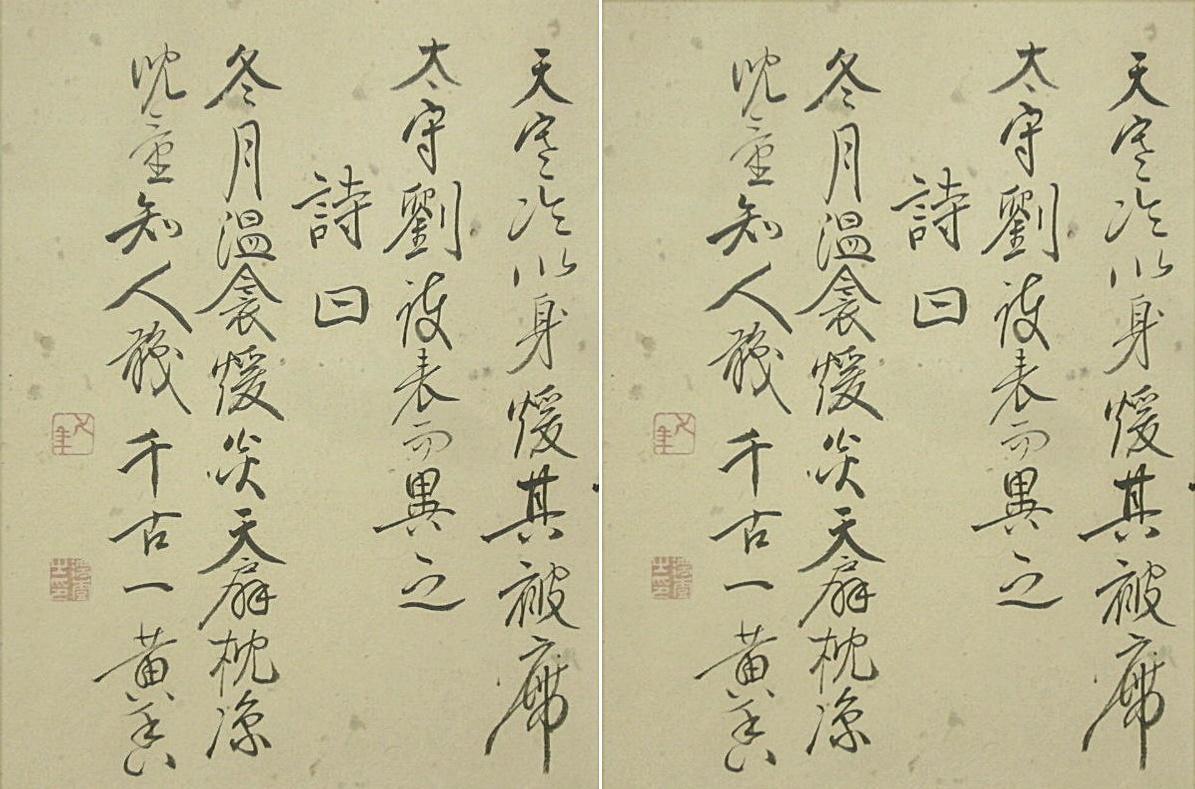 天寒冷以身煖其被席
太守劉護表而異之
詩曰
冬月溫衾煖炎天扇枕凉
兒童知人職千古一黃香
天寒冷以身煖其被席
太守劉護表而異之
詩曰
冬月溫衾煖炎天扇枕凉
兒童知人職千古一黃香